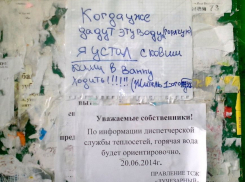 Когда уже
дадут эту воду
я устал с ковши
ками в ванну
ходить!!!!!
Уважаемые собственники!
По информации диспетчерской
службы теплосетей, горячая вода
будет ориентировочно,
20.06.2014г.
ПРАВЛЕНИЕ ТСЖ